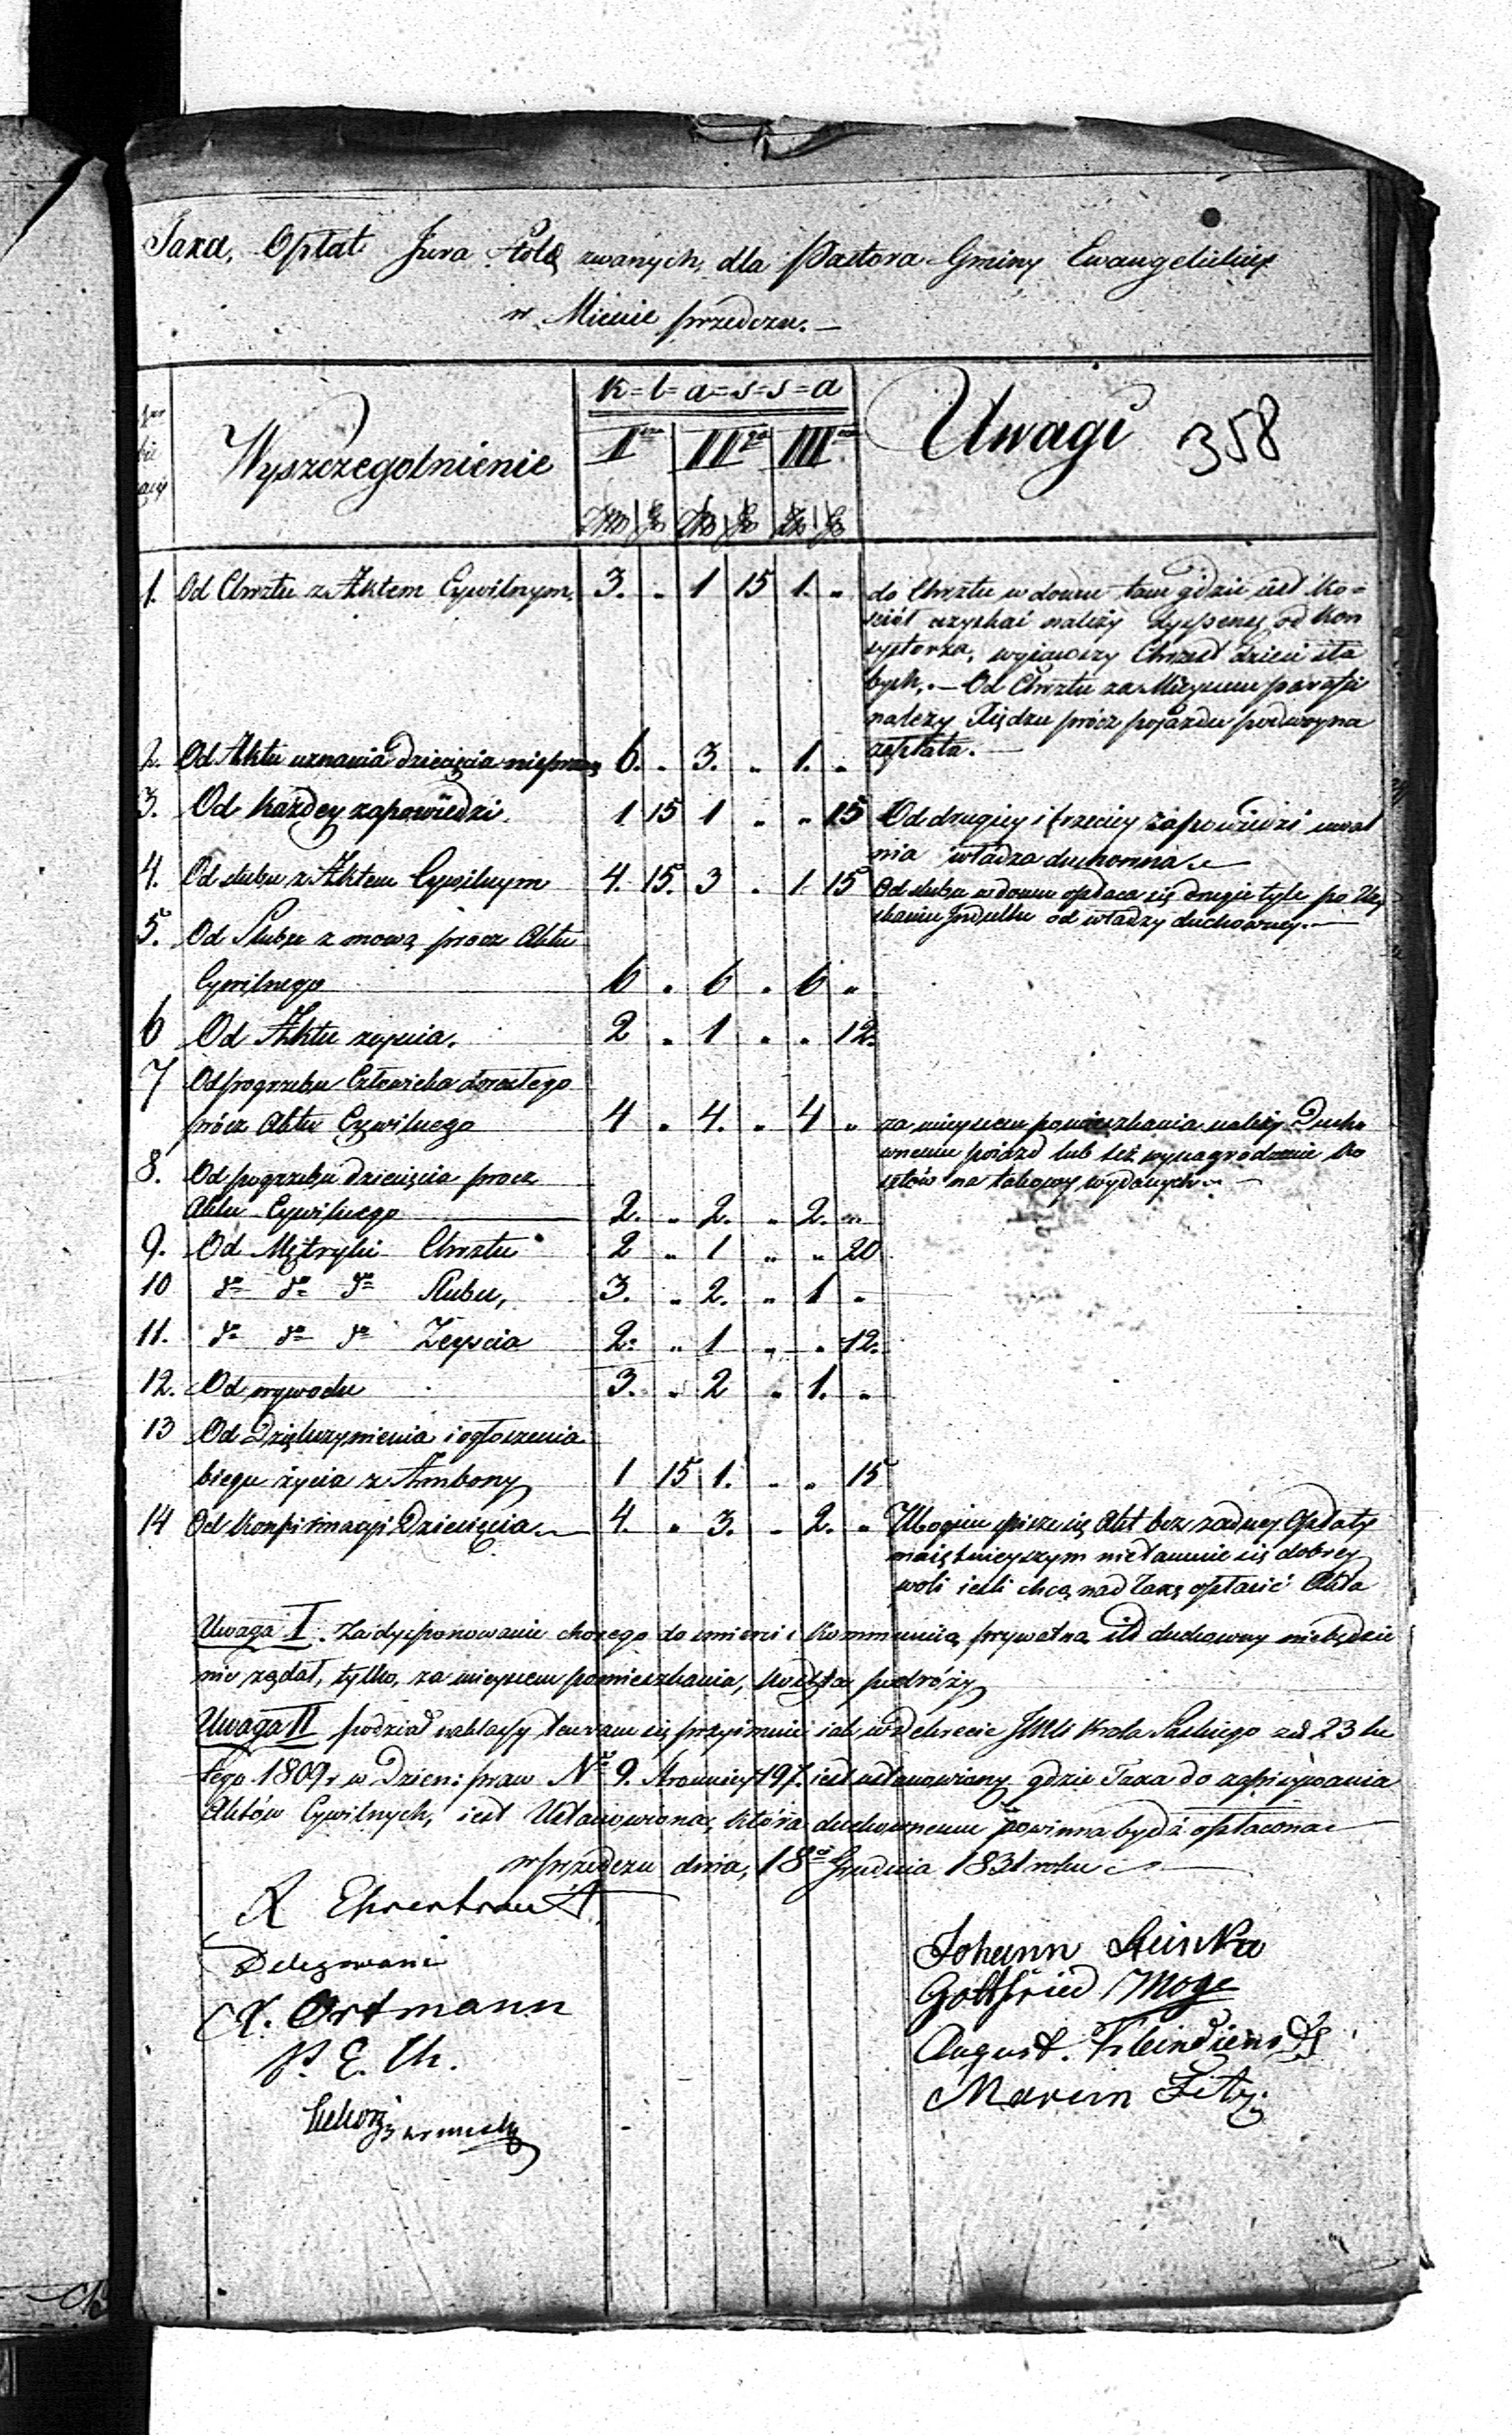 Taxa, Opłat Jura Stolę zwanych, dla Pastora Gminy Ewangelickiey
w Miescie przedczu. —
Wyszczegolnienie
k=l=a=s=s=a
I II III
Uwagi 358
1. Od Chrztu z Aktem Cywilnym. 3. „ 1 15 1. „ do Chrztu w domu tam gdzie iest Ko=
sciół uzyskać należy dyspensę od Kon
systorza, wyiąwszy Chrzest dzieci sła
bych. — Od Chrztu za Mieyscem parafii
należy Xiędzu prócz pojazdu podwoyna
2. Od Aktu uznania dziecięcia 6. „ 3. „ 1. „ zapłata. —
3. Od każdey zapowiedzi. 1. 15 1 „ „ 15 Od drugiey i trzeciey zapowiedzi uwal
nia władza duchowna.
4. Od slubu z Aktem Cywilnym 4. 15. 3 „ 1. 15 Od slubu w domu opłaca się drugie tyle po
skaniu Jndultu od władzy duchowney. —
5. Od Slubu z mową procz Aktu
Cywilnego 6 „ 6 „ 6 „
6 Od Aktu zeyscia. 2 „ 1 „ „ 12.
7 Od pogrzebu Człowieka dorosłego
prócz Aktu Cywilnego 4 „ 4. „ 4 „ za mieyscem pomieszkania należy Ducho
wnemu poiazd lub też wynagrodzenie Ko
sztów na takowy wydanych. —
8. Od pogrzebu dziecięcia procz
Aktu Cywilnego 2. „ 2. „ 2. „
9. Od Metryki Chrztu 2 „ 1 „ „ 20
10 do do do Slubu, 3. „ 2. „ 1 „
11. do do do Zeyscia 2: „ 1 „ „ 12.
12. Od wywodu 3. „ 2 „ 1. „
13 Od Dziękczynienia i ogłoszenia
biegu życia z Ambony 1 15 1. „ „ 15
14 Od Konfirmacyi Dziecięcia. 4. „ 3. „ 2. „ Ubogim pisze się Akt bez żadney Opłaty
maiętnieyszym nietamuie się dobrey
woli iesli chcą nad Taxę opłacić Akta
Uwaga I. Za dysponowanie chorego do smierci i Kommunią prywatną duchowny niebędzie
nic żądał, tylko, za mieyscem pomieszkania, koszta podróży
Uwaga II podział na klassy ten sam się przyimuie iak w dekrecie JMci Krola Saskiego z d 23 lu
tego 1809 r w Dzien: praw No 9. Stronnicy 197. iest ustanowiany gdzie Taxa do zapisywania
Aktów Cywilnych, iest Ustanowiona, która duchownemu powinna bydź opłacona
w przedczu dnia, 18o Grudnia 1831 roku
R Ehrentraut
Delegowani
X. Ortmann
P. E. Ch.
Johann
Gottfried Moge
August. Kleindienst
Marcin